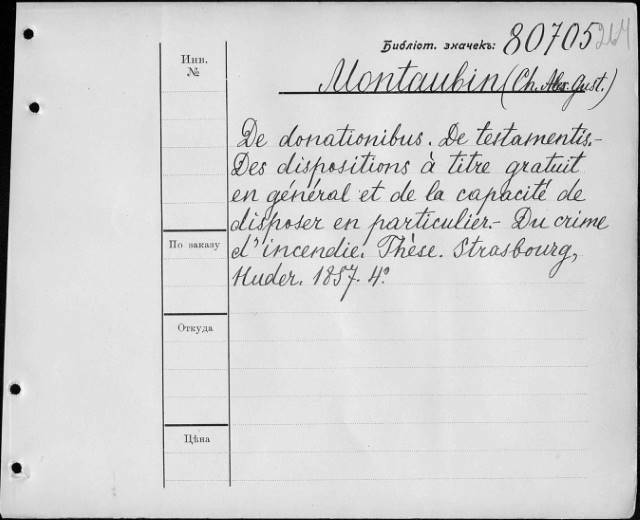 Библiот. значекъ: 80705 264
Инв. №
Montaubin (Ch. Alex. Gust.)
De donationibus. De testamentis.-
Des dispositions à titre gratuit
en général et de la capacité de
disposer en particulier.- Du crime
d'incendie. Thèse. Strasbourg,
Huder. 1857. 4º
По заказу
Откуда
Цѣна